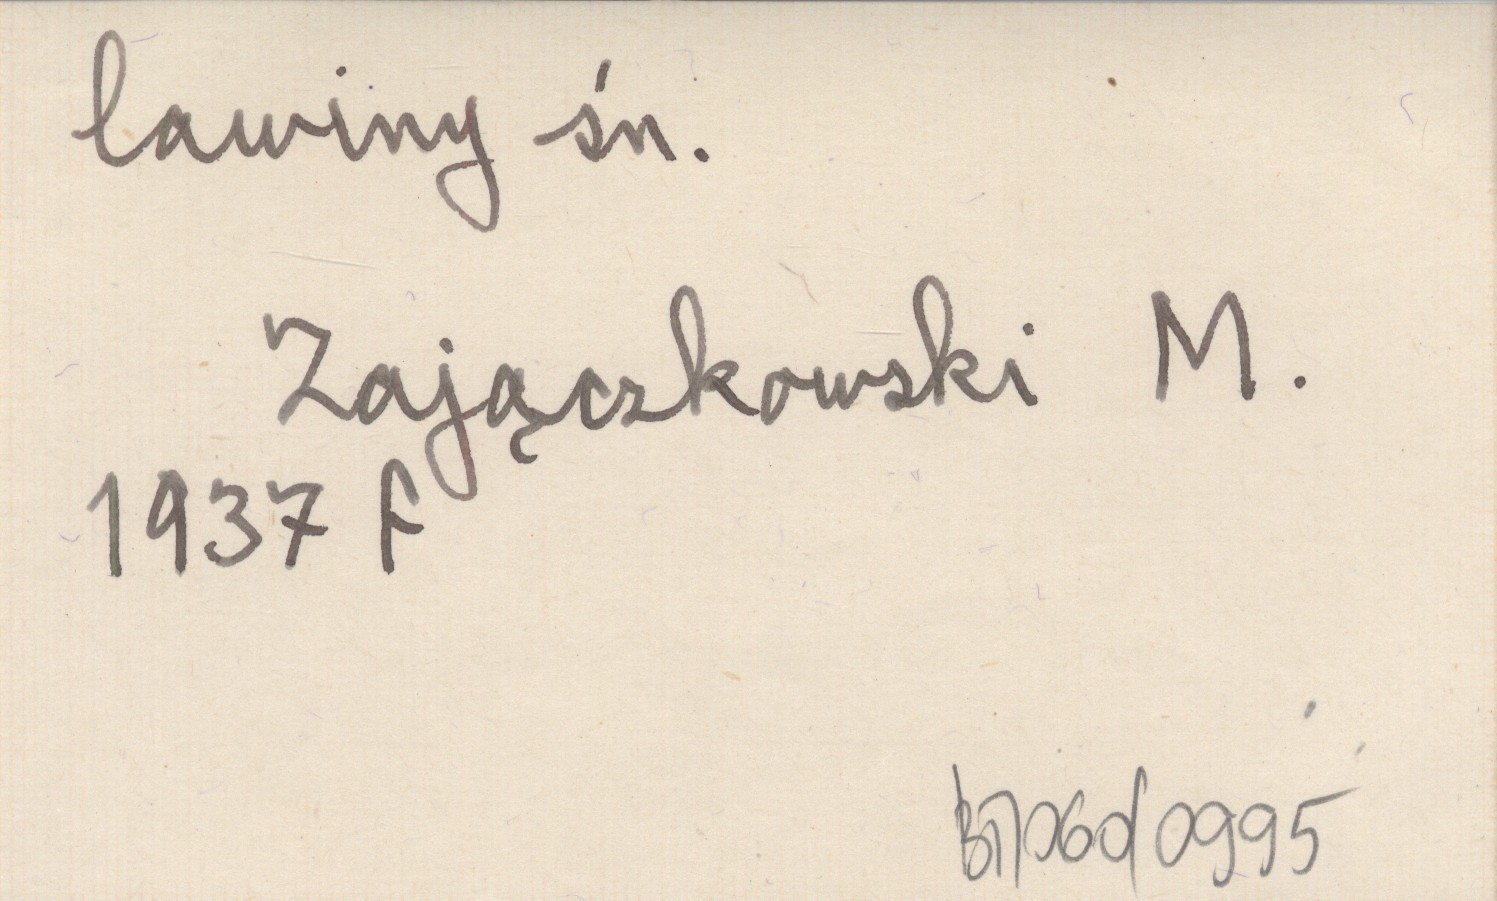 lawiny śn.
Zajączkowski M.
1937 f
060/0995